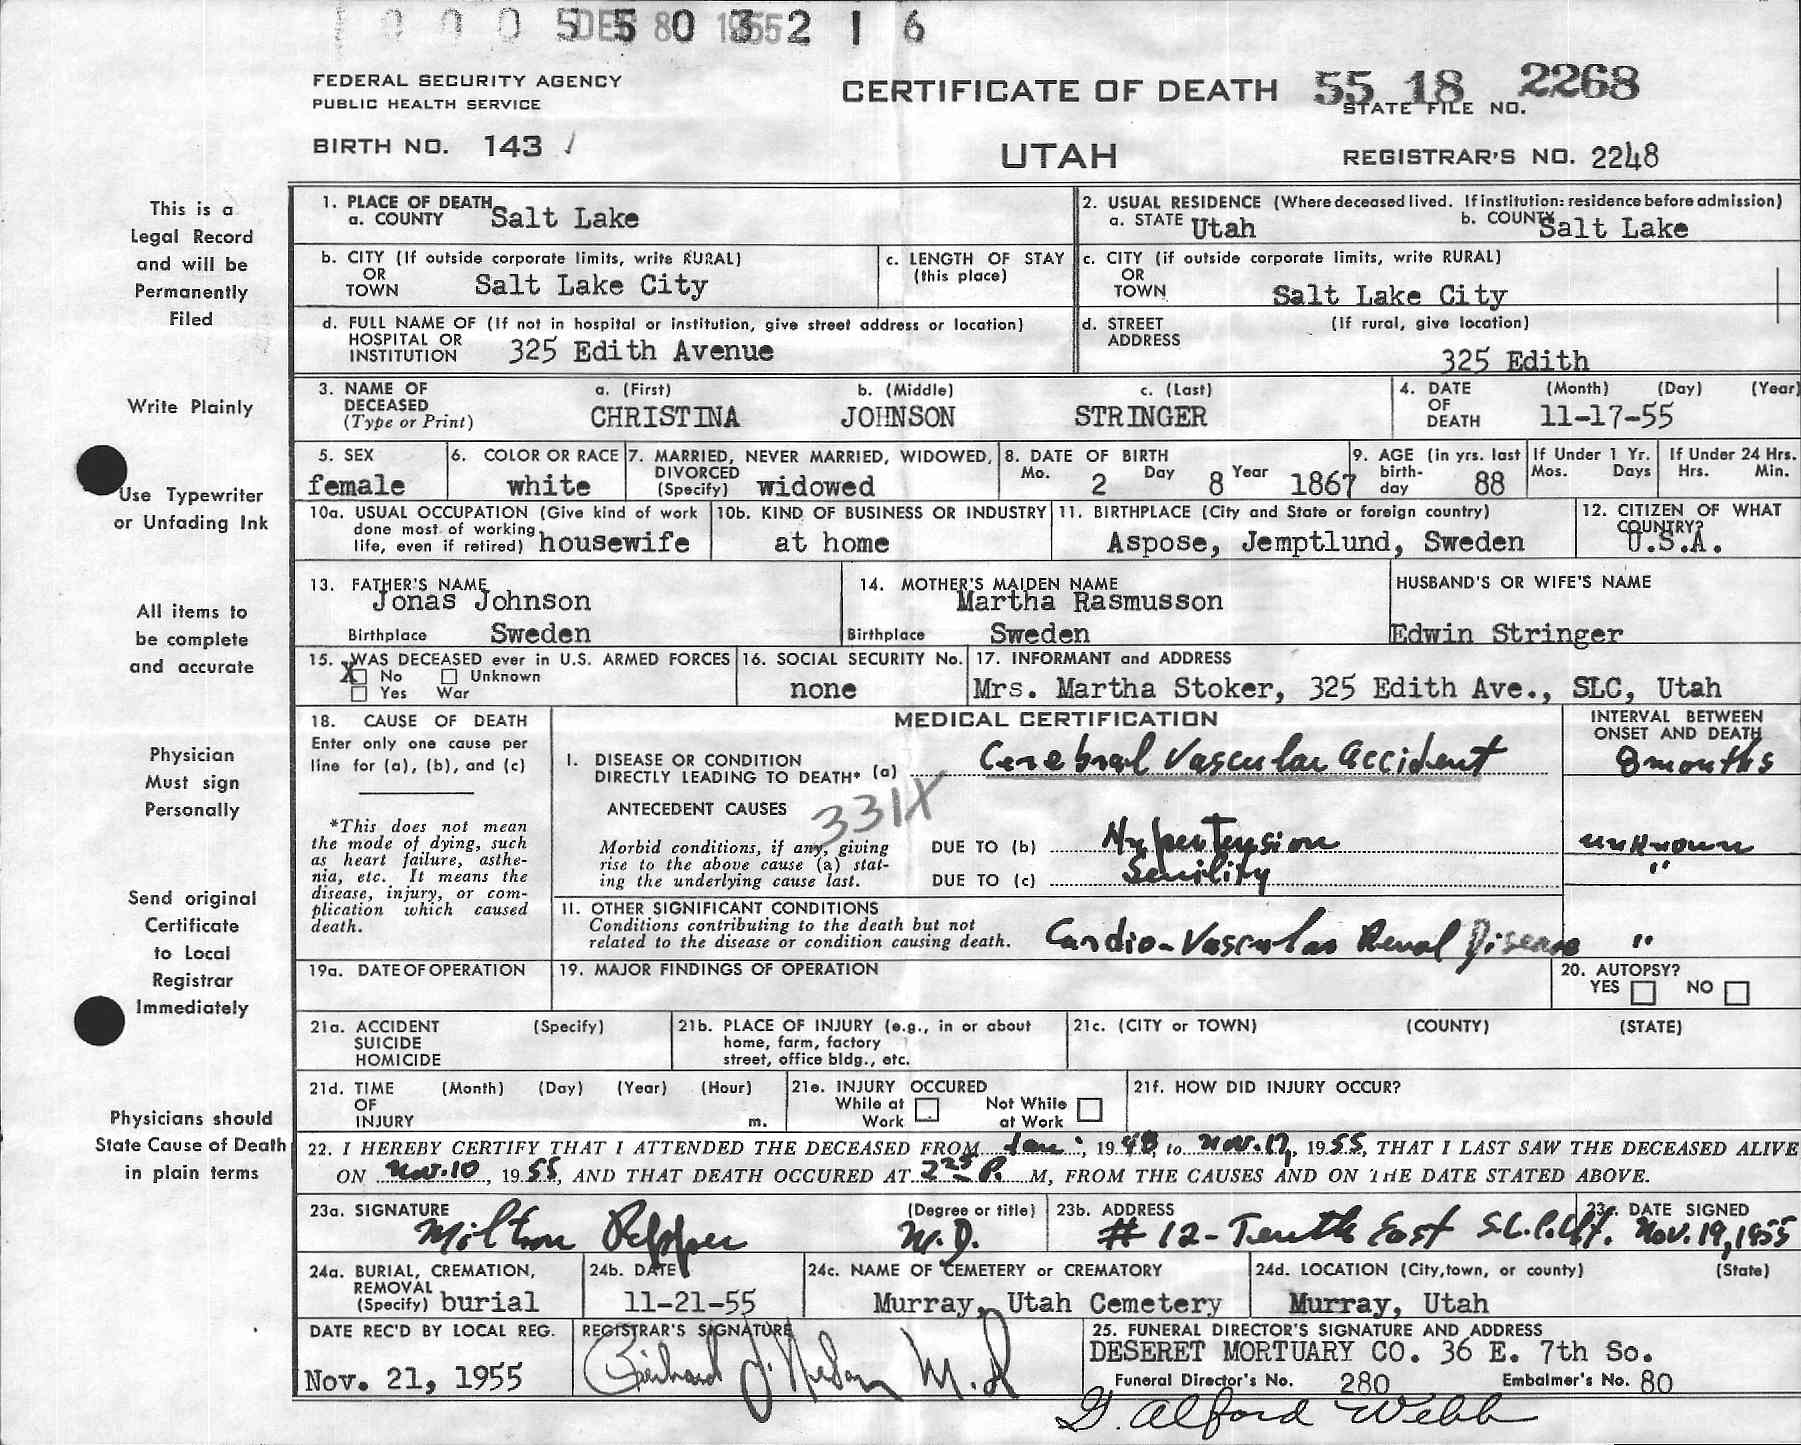 1 0 0 0 5 5 0 3 2 1 6
DEC 8 1955
FEDERAL SECURITY AGENCY
PUBLIC HEALTH SERVICE
CERTIFICATE OF DEATH
55 18 2268
STATE FILE NO.
BIRTH NO. 143
UTAH
REGISTRAR'S NO. 2248
This is a
Legal Record
and will be
Permanently
Filed
Write Plainly
Use Typewriter
or Unfading Ink
All items to
be complete
and accurate
Physician
Must sign
Personally
Send original
Certificate
to Local
Registrar
Immediately
Physicians should
State Cause of Death
in plain terms
1. PLACE OF DEATH
a. COUNTY Salt Lake
2. USUAL RESIDENCE (Where deceased lived. If institution: residence before admission)
a. STATE Utah b. COUNTY Salt Lake
b. CITY (If outside corporate limits, write RURAL)
OR
TOWN Salt Lake City
c. LENGTH OF STAY
(this place)
c. CITY (if outside corporate limits, write RURAL)
OR
TOWN Salt Lake City
d. FULL NAME OF (If not in hospital or institution, give street address or location)
HOSPITAL OR
INSTITUTION 325 Edith Avenue
d. STREET (If rural, give location)
ADDRESS
325 Edith
3. NAME OF a. (First) b. (Middle) c. (Last)
DECEASED
(Type or Print) CHRISTINA JOHNSON STRINGER
4. DATE (Month) (Day) (Year)
OF
DEATH 11-17-55
5. SEX
female
6. COLOR OR RACE
white
7. MARRIED, NEVER MARRIED, WIDOWED,
DIVORCED
(Specify) widowed
8. DATE OF BIRTH
Mo. 2 Day 8 Year 1867
9. AGE (in yrs. last
birth-
day 88
If Under 1 Yr.
Mos. Days
If Under 24 Hrs.
Hrs. Min.
10a. USUAL OCCUPATION (Give kind of work
done most of working
life, even if retired) housewife
10b. KIND OF BUSINESS OR INDUSTRY
at home
11. BIRTHPLACE (City and State or foreign country)
Aspose, Jemptlund, Sweden
12. CITIZEN OF WHAT
COUNTRY?
U.S.A.
13. FATHER'S NAME
Jonas Johnson
Birthplace Sweden
14. MOTHER'S MAIDEN NAME
Martha Rasmusson
Birthplace Sweden
HUSBAND'S OR WIFE'S NAME
Edwin Stringer
15. WAS DECEASED ever in U.S. ARMED FORCES
X No Unknown
Yes War
16. SOCIAL SECURITY No.
none
17. INFORMANT and ADDRESS
Mrs. Martha Stoker, 325 Edith Ave., SLC, Utah
18. CAUSE OF DEATH
Enter only one cause per
line for (a), (b), and (c)
*This does not mean
the mode of dying, such
as heart failure, asthe-
nia, etc. It means the
disease, injury, or com-
plication which caused
death.
MEDICAL CERTIFICATION
INTERVAL BETWEEN
ONSET AND DEATH
I. DISEASE OR CONDITION
DIRECTLY LEADING TO DEATH* (a) Cerebral Vascular Accident 8 months
ANTECEDENT CAUSES 331X
Morbid conditions, if any, giving
rise to the above cause (a) stat-
ing the underlying cause last.
DUE TO (b) Hypertension unknown
DUE TO (c) Senility "
11. OTHER SIGNIFICANT CONDITIONS
Conditions contributing to the death but not
related to the disease or condition causing death. Cardio-Vascular Renal Disease "
19a. DATE OF OPERATION
19. MAJOR FINDINGS OF OPERATION
20. AUTOPSY?
YES NO
21a. ACCIDENT (Specify)
SUICIDE
HOMICIDE
21b. PLACE OF INJURY (e.g., in or about
home, farm, factory
street, office bldg., etc.
21c. (CITY or TOWN) (COUNTY) (STATE)
21d. TIME (Month) (Day) (Year) (Hour)
OF
INJURY m.
21e. INJURY OCCURED
While at Work Not While at Work
21f. HOW DID INJURY OCCUR?
22. I HEREBY CERTIFY THAT I ATTENDED THE DECEASED FROM Jan., 1948, to Nov. 17, 1955, THAT I LAST SAW THE DECEASED ALIVE
ON Nov. 10, 1955, AND THAT DEATH OCCURED AT 2 25 P. M, FROM THE CAUSES AND ON THE DATE STATED ABOVE.
23a. SIGNATURE (Degree or title)
Milton Pepper M.D.
23b. ADDRESS
# 12 - Tenth East S.L.C. Ut.
23c. DATE SIGNED
Nov. 19, 1955
24a. BURIAL, CREMATION,
REMOVAL
(Specify) burial
24b. DATE
11-21-55
24c. NAME OF CEMETERY or CREMATORY
Murray, Utah Cemetery
24d. LOCATION (City, town, or county) (State)
Murray, Utah
DATE REC'D BY LOCAL REG.
Nov. 21, 1955
REGISTRAR'S SIGNATURE
Richard J. Nelson M.D
25. FUNERAL DIRECTOR'S SIGNATURE AND ADDRESS
DESERET MORTUARY CO. 36 E. 7th So.
Funeral Director's No. 280 Embalmer's No. 80
G. Alford Webb